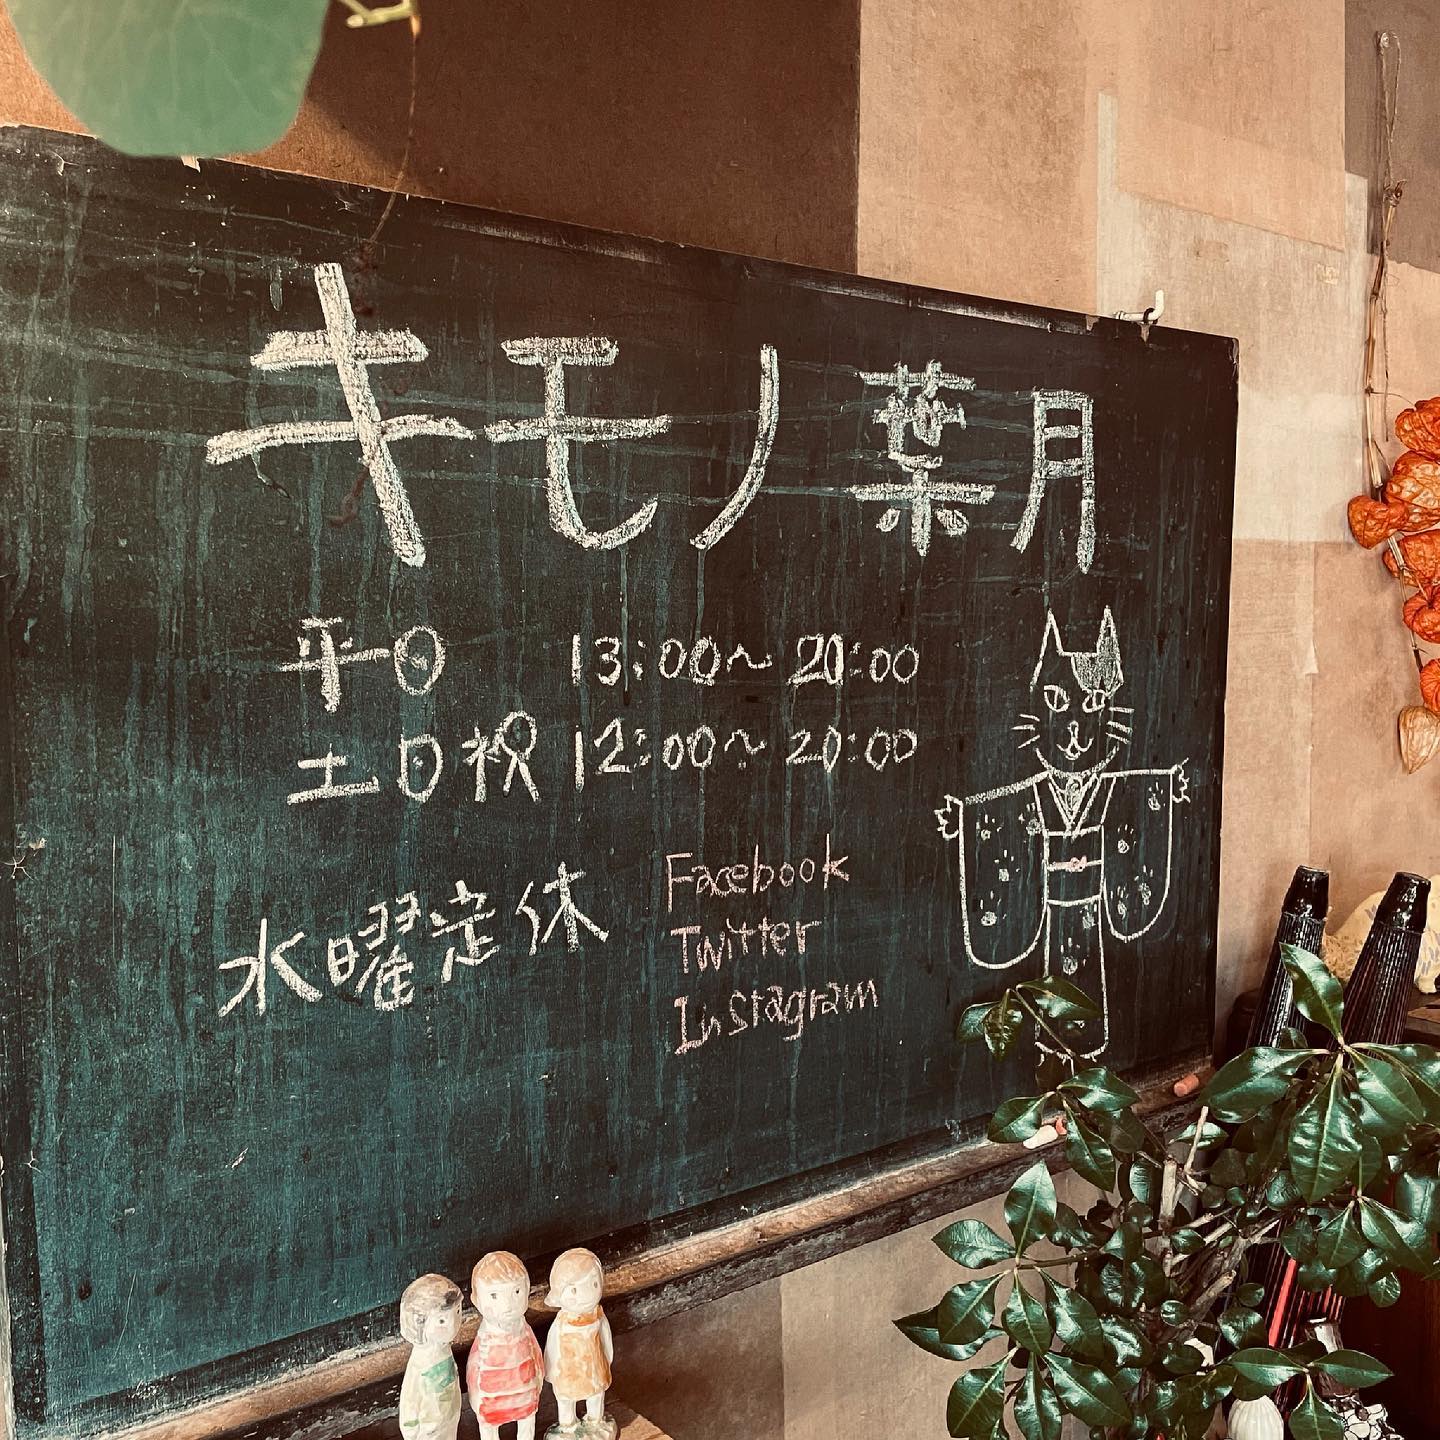 キモノ 葉月
平日 13:00〜20:00
土日祝 12:00〜20:00
水曜定休
Facebook
Twitter
Instagram